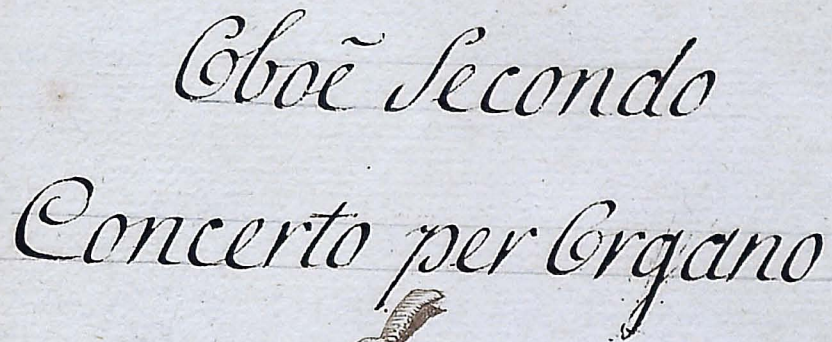 Oboẽ Secondo
Concerto per Organo